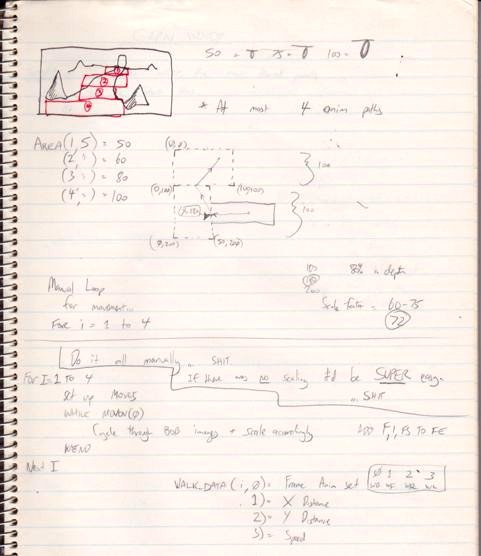 50 = 75 = 100 =
* At most 4 anim paths
AREA(1,5) = 50
(2, ") = 60
(3, ") = 80
(4, ") = 100
(0,0)
100
(0,100) (100,100)
100
(0,200) (50,200)
100 80% in depth
200
Scale factor = 60-75
72
Manual Loop
for movement...
For i = 1 to 4
Do it all manually ... SHIT
If there was no scaling it'd be SUPER easy.
... SHIT
For I=1 to 4
Set up Moves
WHILE MOVON(0)
Cycle through BOB images + scale accordingly
ADD F,1, TO FE
WEND
Next I
WALK_DATA(i,0) = Frame Anim set 0 1 2 3
1) = X Distance
2) = Y Distance
3) = Speed